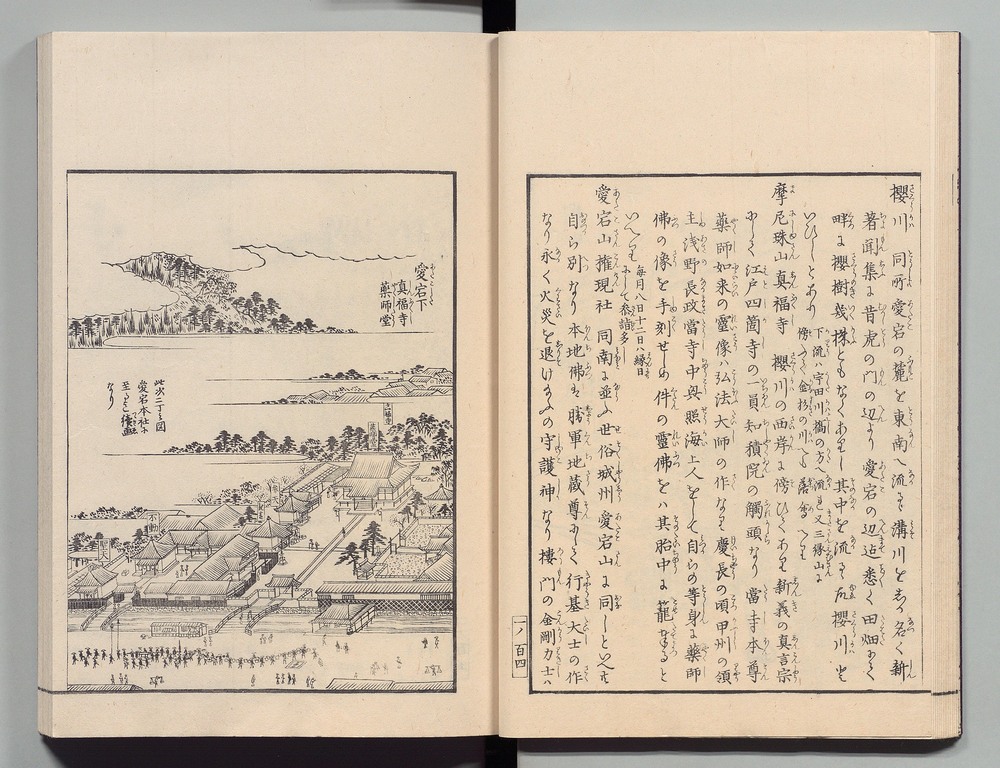 櫻川 同所愛宕の麓を東南へ流るゝ溝川をしか名く新
著聞集に昔虎の門の辺より愛宕の辺迄悉く田畑にて
畔に櫻樹幾株ともなくありし其中を流るゝ故櫻川と
いひしとあり
下流ハ宇田川橋の方へ流る又三縁山に
傍ふて金杉の川へも落會へり
摩尼珠山真福寺 櫻川の西岸に傍ひてあり新義の真言宗
にして江戸四箇寺の一員知積院の觸頭なり當寺本尊
薬師如来の靈像ハ弘法大師の作なり慶長の頃甲州の領
主浅野長政當寺中興照海上人をして自らの等身に薬師
佛の像を手刻せしめ件の靈佛をハ其胎中に籠奉ると
いへり
毎月八日十二日ハ縁日
にして参詣多し
愛宕山権現社 同南に並ふ世俗城州愛宕山に同しといへとも
自ら別なり本地佛ハ勝軍地蔵尊にして行基大士の作
なり永く火災を退けたまふの守護神なり樓門の金剛力士ハ
一ノ百四
愛宕下
真福寺
薬師堂
此次二丁の図
愛宕本社に
至る
なり
不動